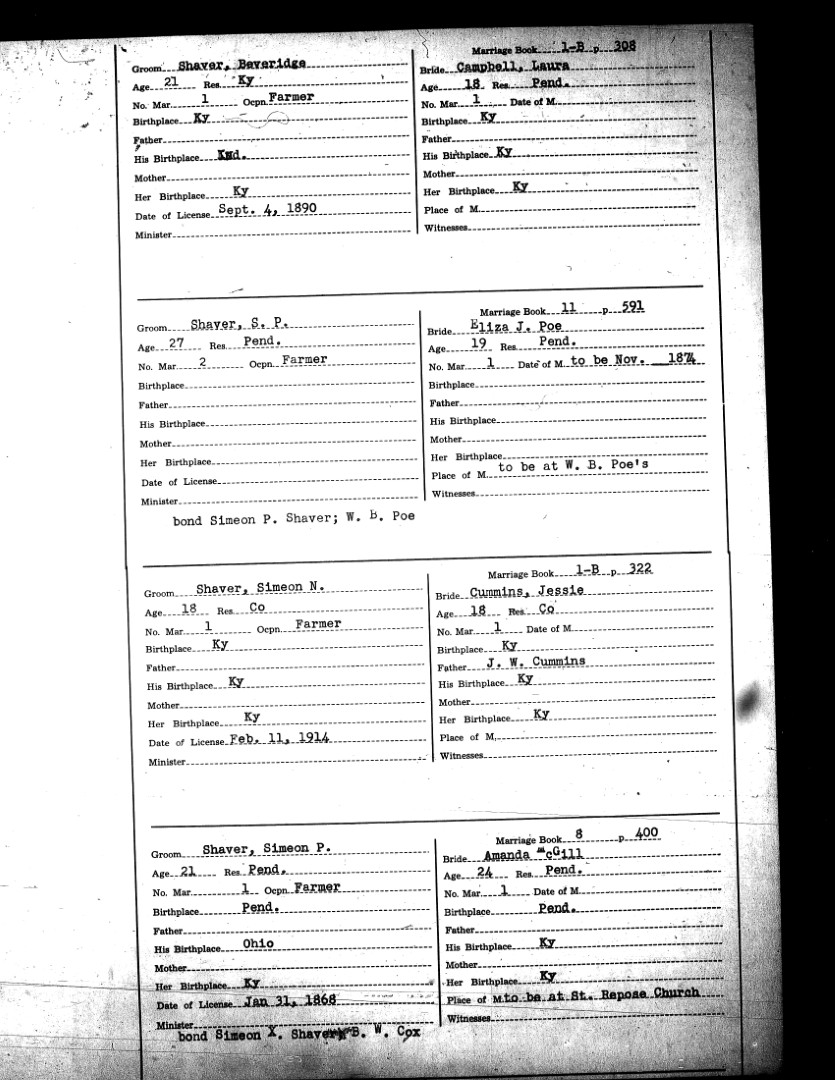 Marriage Book 1-B p 308
Groom Shaver, Beveridge
Bride Campbell, Laura
Age 21 Res Ky
Age 18 Res Pend.
No. Mar 1 Ocpn Farmer
No. Mar 1 Date of M.
Birthplace Ky
Birthplace Ky
Father
Father
His Birthplace Ind.
His Birthplace Ky
Mother
Mother
Her Birthplace Ky
Her Birthplace Ky
Date of License Sept. 4, 1890
Place of M.
Minister
Witnesses
Marriage Book 11 p 591
Groom Shaver, S. P.
Bride Eliza J. Poe
Age 27 Res Pend.
Age 19 Res Pend.
No. Mar 2 Ocpn Farmer
No. Mar 1 Date of M. to be Nov. 1874
Birthplace
Birthplace
Father
Father
His Birthplace
His Birthplace
Mother
Mother
Her Birthplace
Her Birthplace
Date of License
Place of M. to be at W. B. Poe's
Minister
Witnesses
bond Simeon P. Shaver; W. B. Poe
Marriage Book 1-B p 322
Groom Shaver, Simeon N.
Bride Cummins, Jessie
Age 18 Res Co
Age 18 Res Co
No. Mar 1 Ocpn Farmer
No. Mar 1 Date of M
Birthplace Ky
Birthplace Ky
Father
Father J. W. Cummins
His Birthplace Ky
His Birthplace Ky
Mother
Mother
Her Birthplace Ky
Her Birthplace Ky
Date of License Feb. 11, 1914
Place of M.
Minister
Witnesses
Marriage Book 8 p 400
Groom Shaver, Simeon P.
Bride Amanda McGill
Age 21 Res Pend.
Age 24 Res Pend.
No. Mar 1 Ocpn Farmer
No. Mar 1 Date of M
Birthplace Pend.
Birthplace Pend.
Father
Father
His Birthplace Ohio
His Birthplace Ky
Mother
Mother
Her Birthplace Ky
Her Birthplace Ky
Date of License Jan 31, 1868
Place of M to be at St. Repose Church
Minister
Witnesses
bond Simeon X. Shaver B. W. Cox